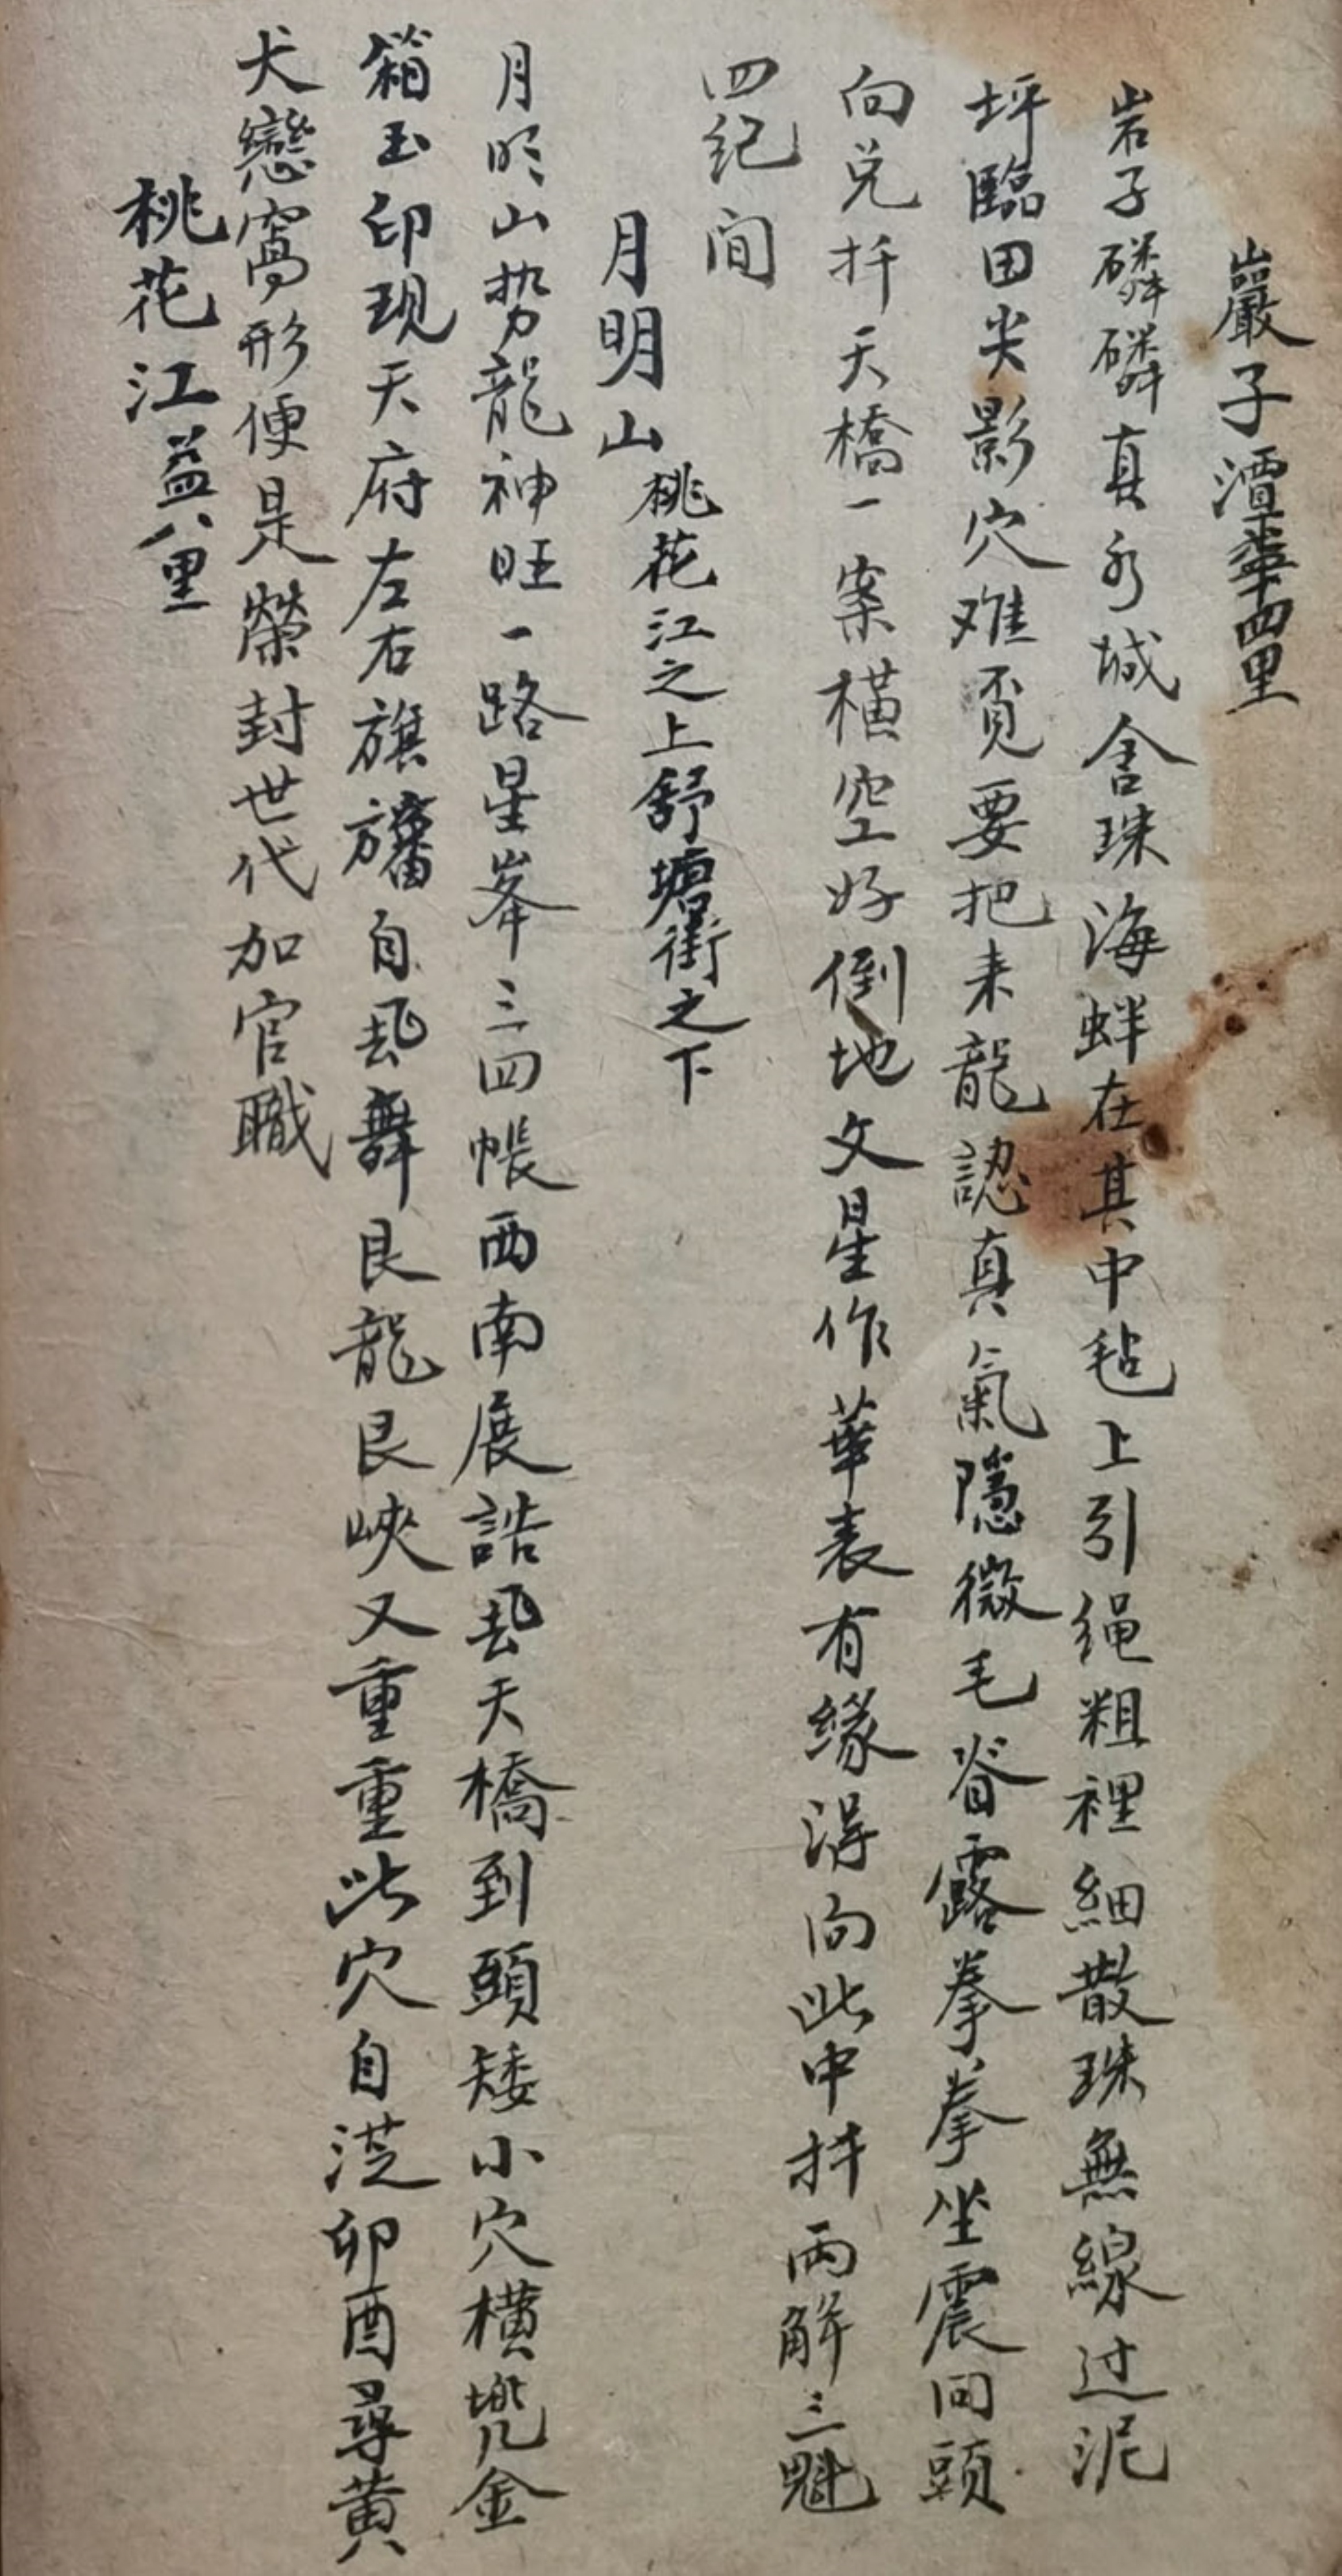 巖子潭寧四里
岩子磷磷真水城含珠海蚌在其中毡上引绳粗裡細散珠無線过泥
坪臨田尖影穴难覔要把来龍認真氣隱微毛脊露拳拳坐震回頭
向兑扦天橋一案橫空好倒地文星作華表有緣得向此中扦兩解三魁
四纪间
月明山桃花江之上舒塘街之下
月明山势龍神旺一路星峯三四帳西南展誥飛天橋到頭矮小穴橫兜金
箱玉印现天府左右旗旛自飛舞艮龍艮峽又重重此穴自從卯酉尋黄
犬戀窩形便是榮封世代加官職
桃花江益八里